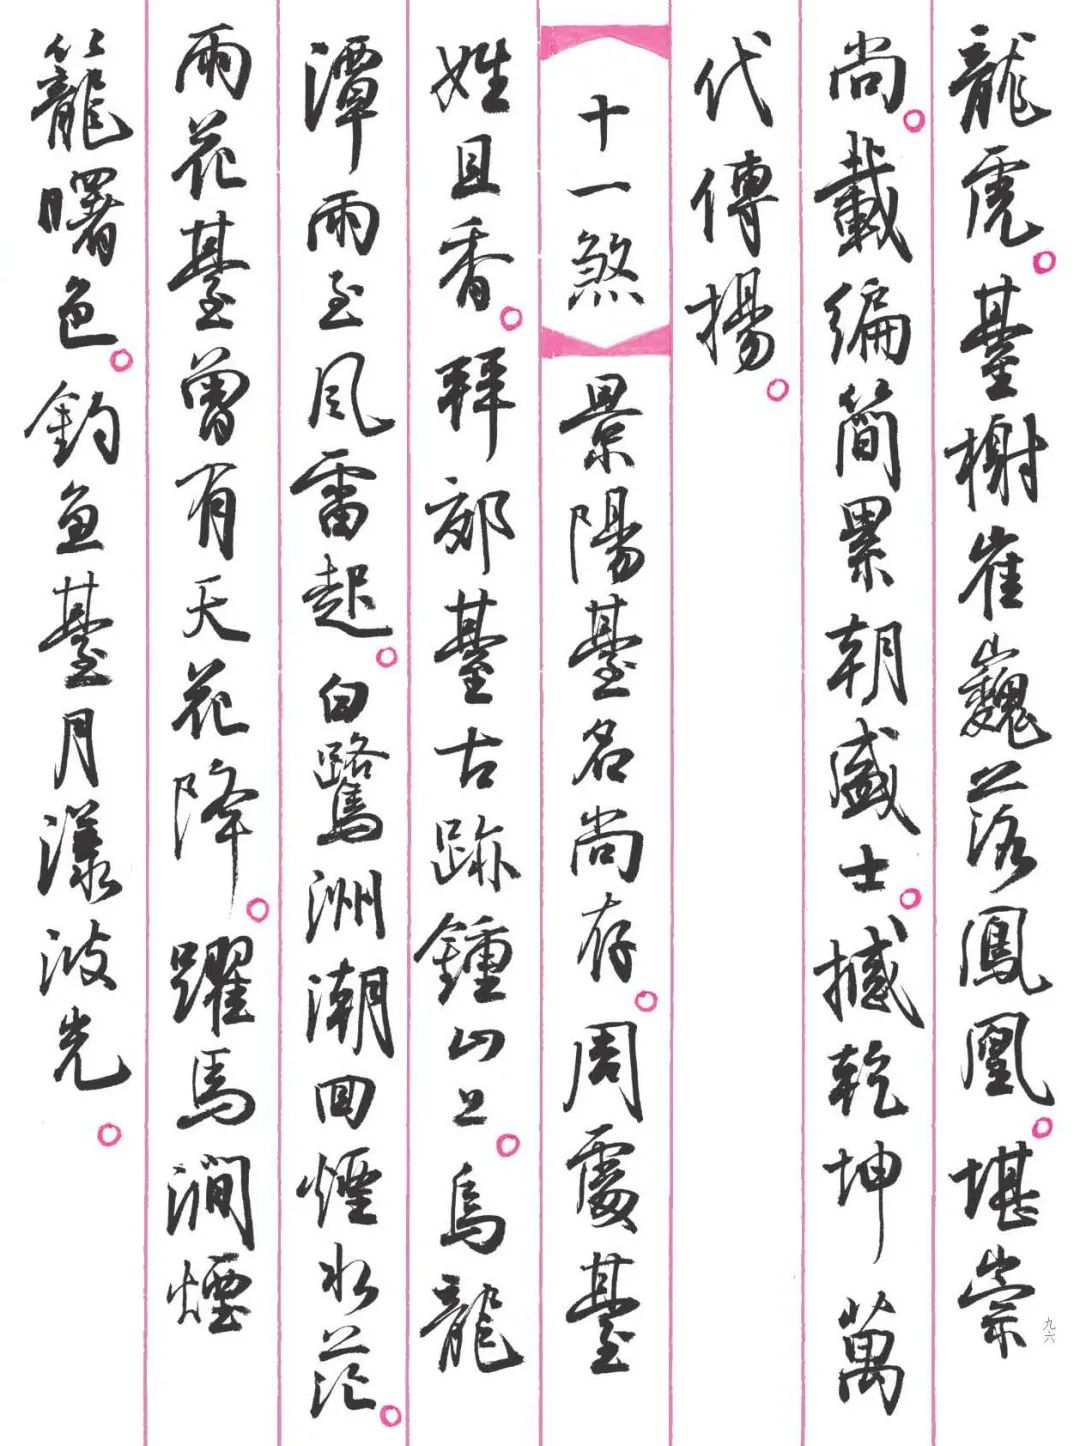 龍虎。臺榭崔巍落鳳凰。堪崇
尚。載編簡累朝盛士。撼乾坤萬
代傳揚。
十一煞 景陽臺名尚存。周處臺
姓且香。拜郊臺古跡鍾山上。烏龍
潭雨至風雷起。白鷺洲潮回煙水茫。
雨花臺曾有天花降。躍馬澗煙
籠曙色。釣魚臺月漾波光。
九六